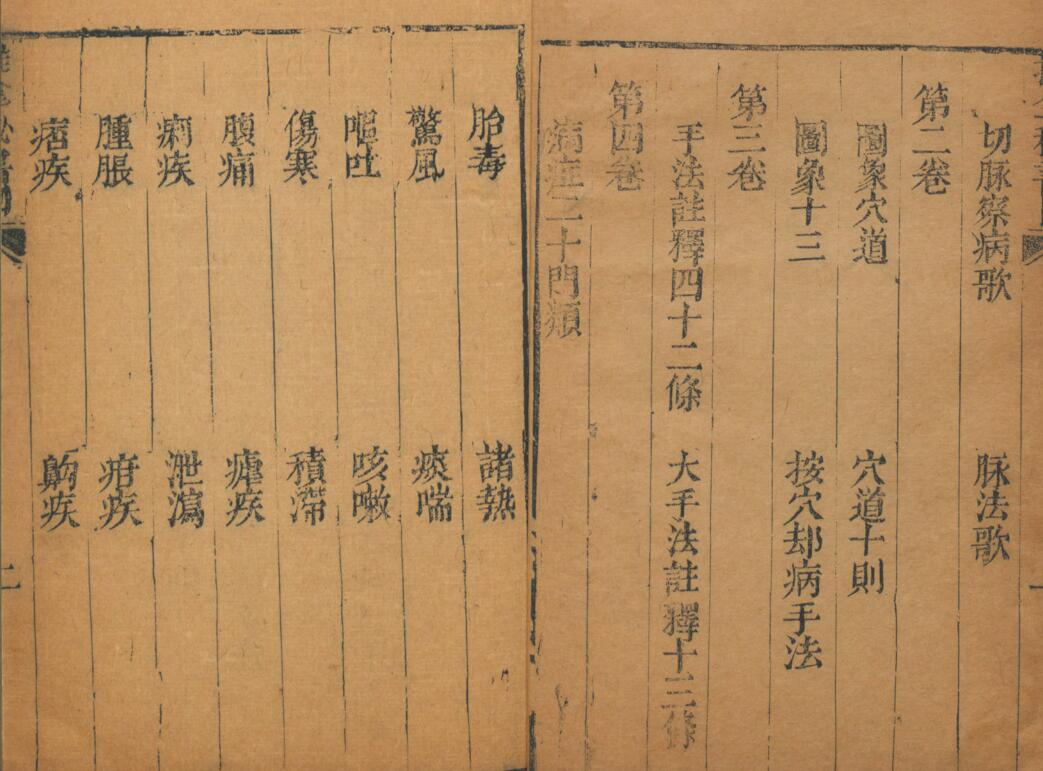 切脉察病歌　脉法歌
第二卷
圖象穴道　穴道十則
圖象十三　按穴却病手法
第三卷
手法註釋四十二條　大手法註釋十三條
第四卷
病症二十門類
胎毒　諸熱
驚風　痰喘
嘔吐　咳嗽
傷寒　積滯
腹痛　瘧疾
痢疾　泄瀉
腫脹　疳疾
痞疾　齁疾
二